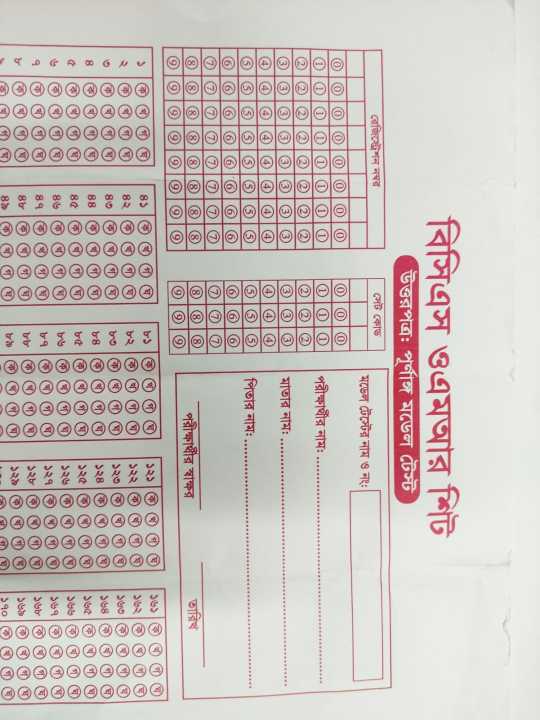 বিসিএস ওএমআর শিট
উত্তরপত্র: পূর্ণাঙ্গ মডেল টেস্ট
রেজিস্ট্রেশন নম্বর
0 0 0 0 0 0 0 0
1 1 1 1 1 1 1 1
2 2 2 2 2 2 2 2
3 3 3 3 3 3 3 3
4 4 4 4 4 4 4 4
5 5 5 5 5 5 5 5
6 6 6 6 6 6 6 6
7 7 7 7 7 7 7 7
8 8 8 8 8 8 8 8
9 9 9 9 9 9 9 9
সেট কোড
0 0 0
1 1 1
2 2 2
3 3 3
4 4 4
5 5 5
6 6 6
7 7 7
8 8 8
9 9 9
মডেল টেস্টের নাম ও নং:
পরীক্ষার্থীর নাম:
মাতার নাম:
পিতার নাম:
পরীক্ষার্থীর স্বাক্ষর তারিখ
১ ক খ গ ঘ ৪১ ক খ গ ঘ ৮১ ক খ গ ঘ ১২১ ক খ গ ঘ ১৬১ ক খ গ ঘ
২ ক খ গ ঘ ৪২ ক খ গ ঘ ৮২ ক খ গ ঘ ১২২ ক খ গ ঘ ১৬২ ক খ গ ঘ
৩ ক খ গ ঘ ৪৩ ক খ গ ঘ ৮৩ ক খ গ ঘ ১২৩ ক খ গ ঘ ১৬৩ ক খ গ ঘ
৪ ক খ গ ঘ ৪৪ ক খ গ ঘ ৮৪ ক খ গ ঘ ১২৪ ক খ গ ঘ ১৬৪ ক খ গ ঘ
৫ ক খ গ ঘ ৪৫ ক খ গ ঘ ৮৫ ক খ গ ঘ ১২৫ ক খ গ ঘ ১৬৫ ক খ গ ঘ
৬ ক খ গ ঘ ৪৬ ক খ গ ঘ ৮৬ ক খ গ ঘ ১২৬ ক খ গ ঘ ১৬৬ ক খ গ ঘ
৭ ক খ গ ঘ ৪৭ ক খ গ ঘ ৮৭ ক খ গ ঘ ১২৭ ক খ গ ঘ ১৬৭ ক খ গ ঘ
৮ ক খ গ ঘ ৪৮ ক খ গ ঘ ৮৮ ক খ গ ঘ ১২৮ ক খ গ ঘ ১৬৮ ক খ গ ঘ
৪৯ ক খ গ ঘ ৮৯ ক খ গ ঘ ১২৯ ক খ গ ঘ ১৬৯ ক খ গ ঘ
১৭০ ক খ গ ঘ